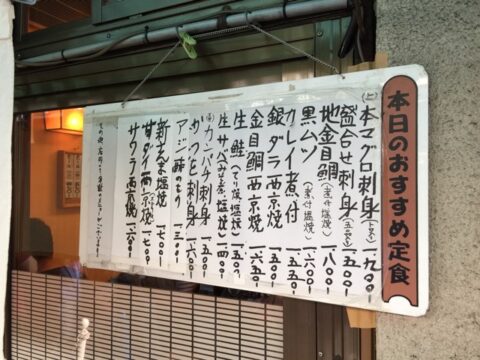 本日のおすすめ定食
本マグロ刺身 一九〇〇
盛合せ刺身 一、五〇〇
地金目鯛(煮付・塩焼) 一、八〇〇
黒ムツ(煮付・塩焼)
カレイ煮付
銀ダラ西京焼 一、五五〇
金目鯛西京焼 一、六五〇
生鮭(てり焼・塩焼) 一、五〇〇
生サバ(みそ煮・塩焼) 一、四〇〇
カンパチ刺身 一、五〇〇
かつを刺身 一、六〇〇
アジ 一、三〇〇
新さんま塩焼
甘ダイ西京焼 一、七〇〇
サワラ西京焼 一、六〇〇